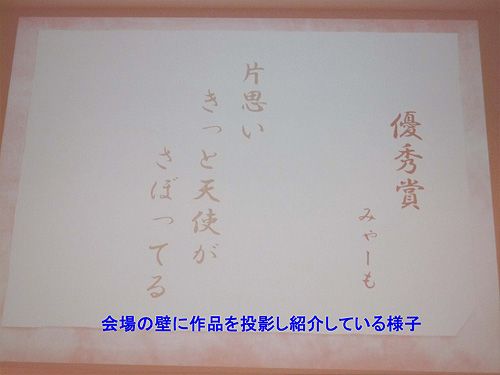 優秀賞
みゃーも
片思い
きっと天使が
さぼってる
会場の壁に作品を投影し紹介している様子